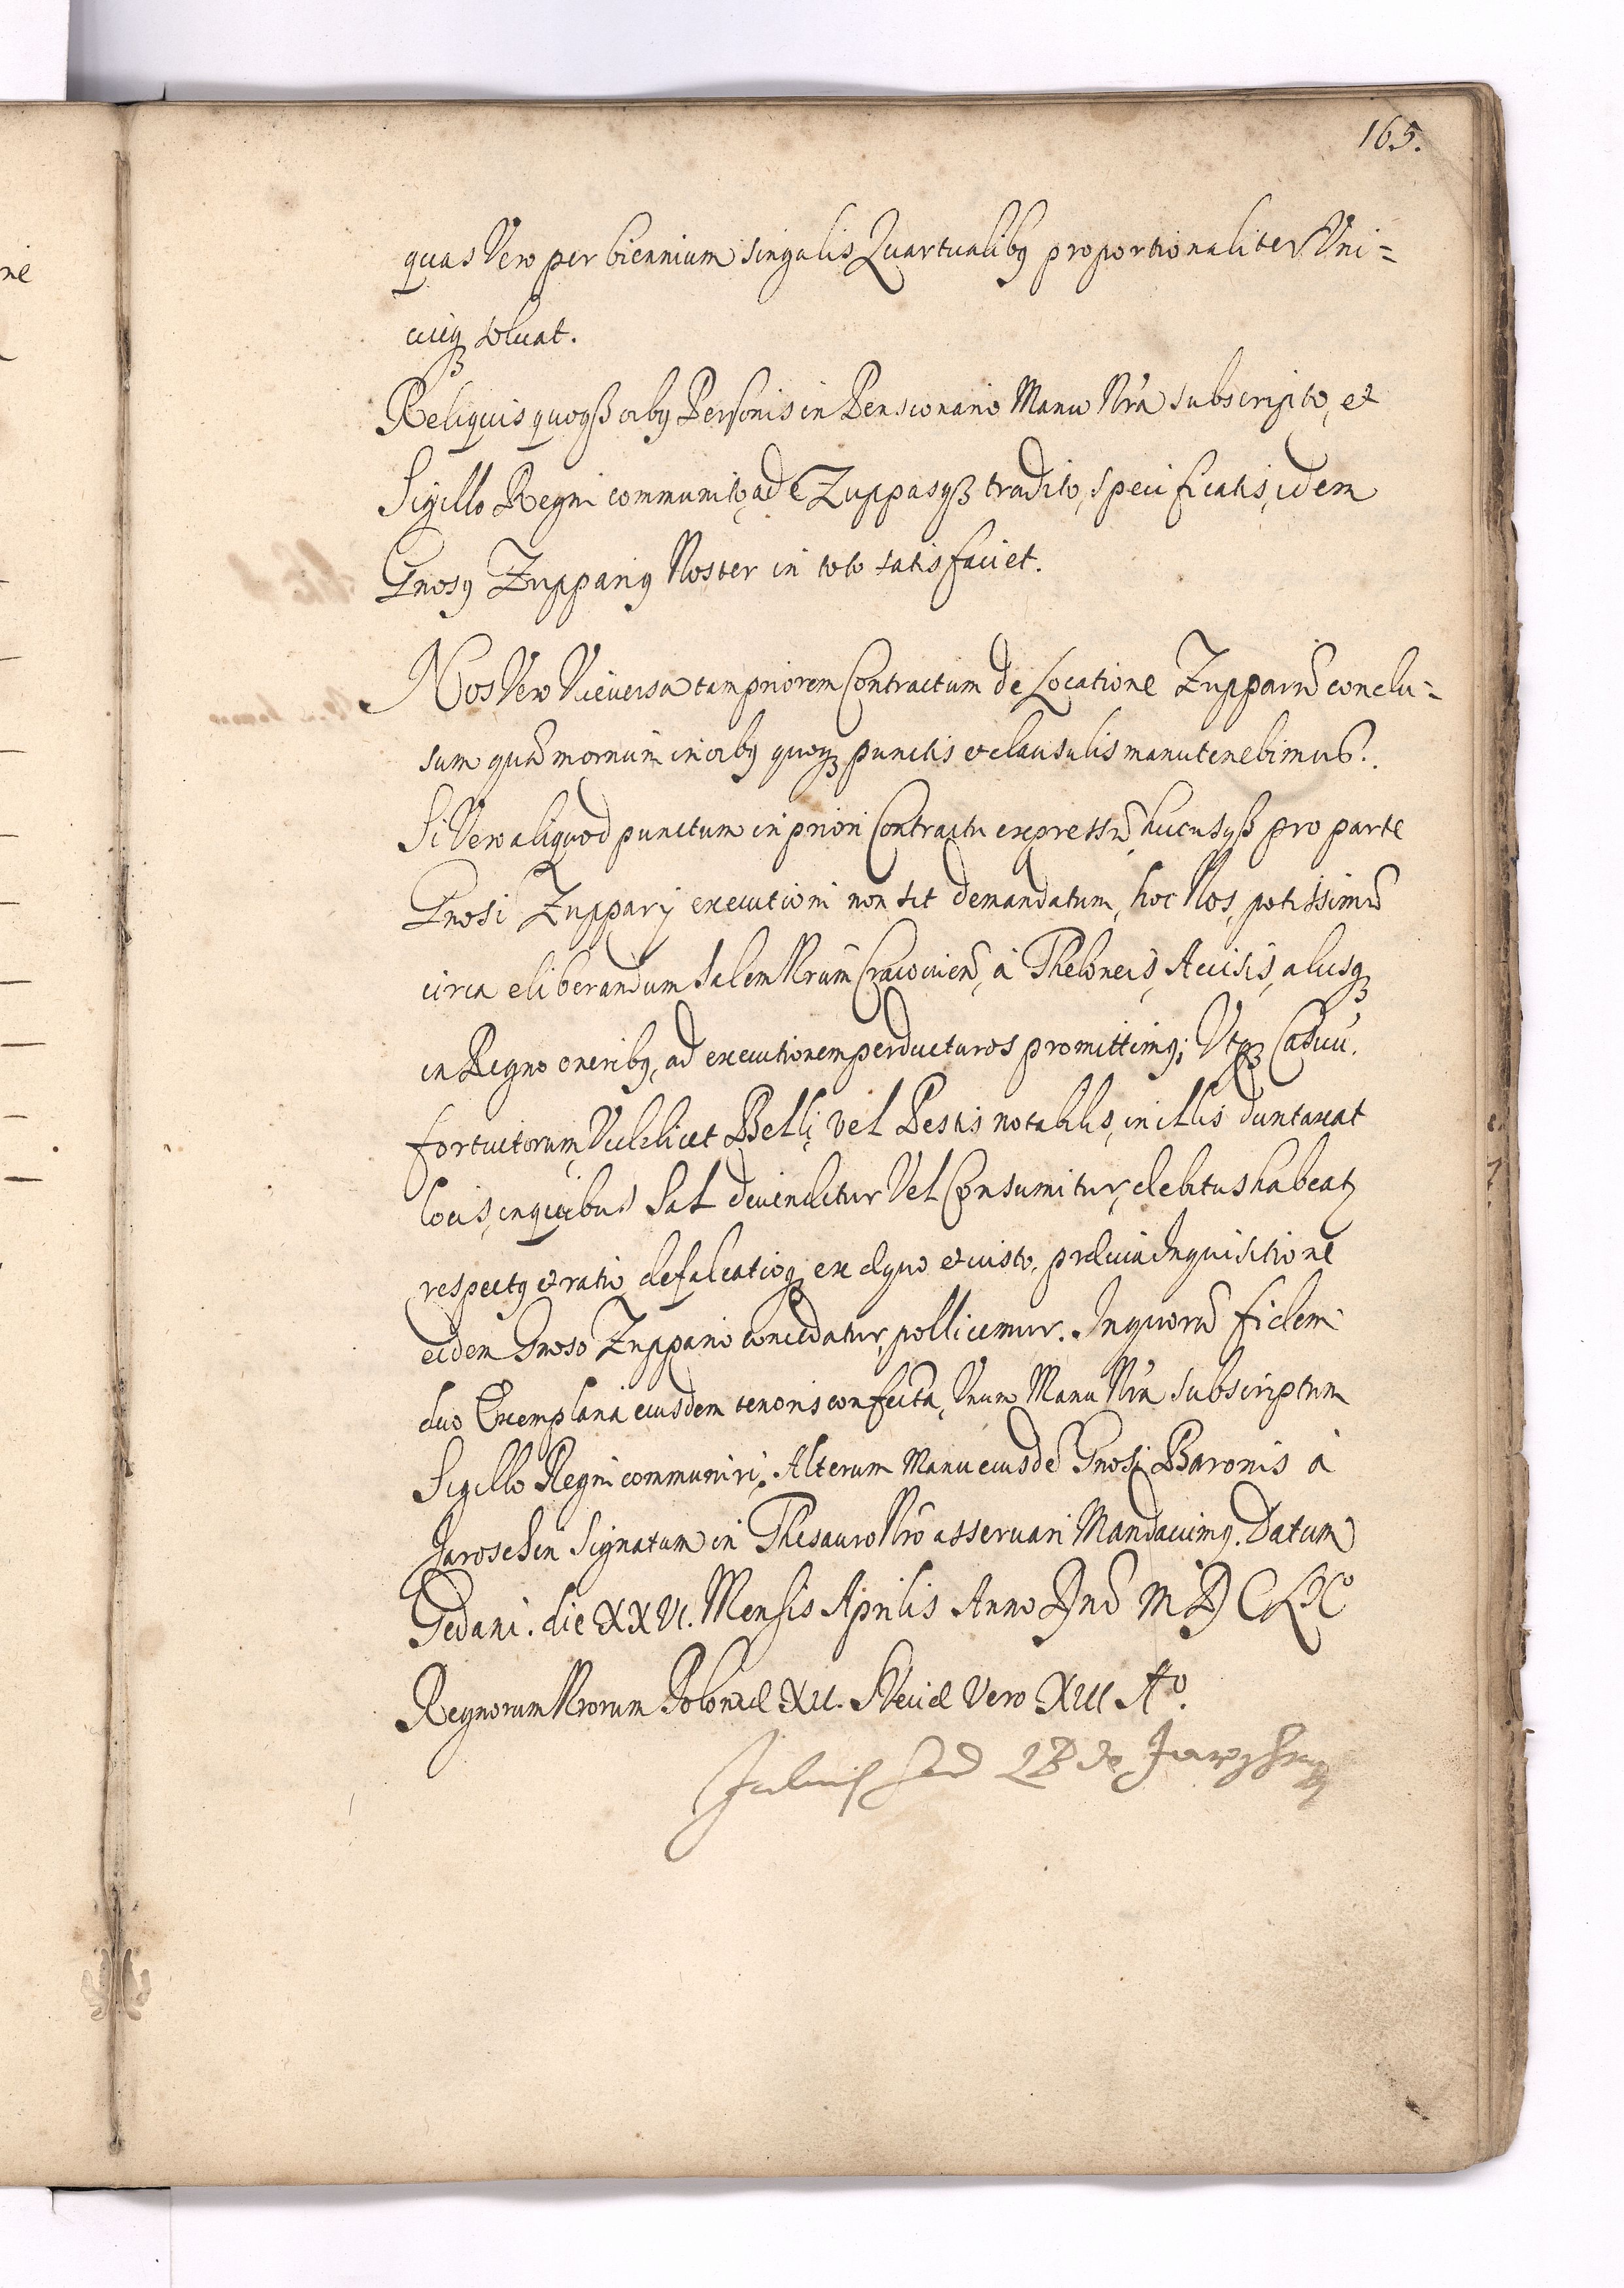 165.
quas Vero per biennium singulis Quartualibꝰ proportionaliter Vni=
cuiqꝫ soluat.
Reliquis quoqꝫ oibꝰ Personis in Pensionario Manu Nrã subscripto, et
Sigillo Regni communito, ad Zuppasqꝫ tradito, specificatis, idem
Gnosꝰ Zuppariꝰ Noster in toto satisfaciet.
Nos Vero Viceversa tam priorem Contractum de Locatione Zupparũ conclu=
sum quã modernum in oibꝰ quoqꝫ punctis et clausulis manutenebimus.
Si Vero aliquod punctum in priori Contractu expressũ, hucusqꝫ pro parte
Gnosi Zupparij executioni non sit demandatum, hoc Nos, potissimũ
circa eliberandum salem Nrum Cracouieñ, à Theloneis, Accisis, alijsqꝫ
in Regno oneribꝰ, ad executionem perducturos promittimꝰ; Vtqꝫ Casuũ
fortuitorum, Videlicet Belli, vel Pestis notabilis, in illis duntaxat
locis, in quibus Sal deuenditur Vel Consumitur, debitus habeatʒ
respectꝰ et ratio, defalcatioqꝫ ex æquo et iusto, præuia Inquisitione
eidem Gnoso Zuppario concedatur, pollicemur. In quorũ fidem
duo Exemplaria eiusdem tenoris confecta, Vnum Manu Nrã subscriptum
Sigillo Regni communiri, Alterum Manu eiusdẽ Gnosi Baronis à
Jaroschin Signatum in Thesauro Nrõ asseruari Mandauimꝰ. Datum
Gedani. die XXVI. Mensis Aprilis Anno Dnĩ MDCLXº
Regnorum Nrorum Poloniæ XII. Sueciæ Vero XIII Aº.
LB de